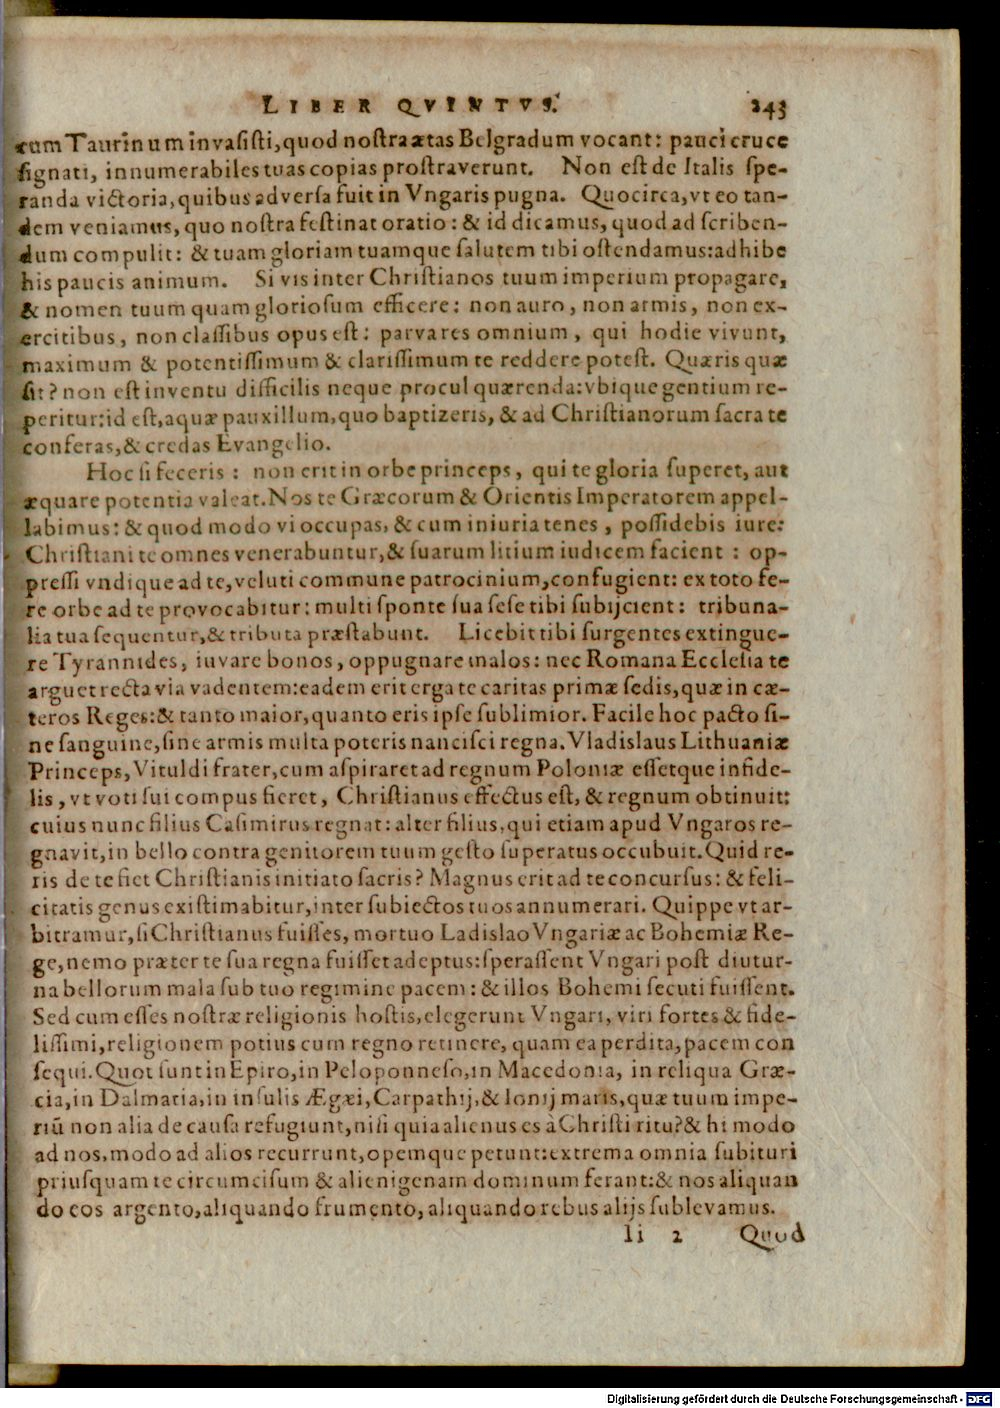 LIBER QVINTVS. 243
rum Taurinum invasisti, quod nostra ætas Belgradum vocant: pauci cruce
signati, innumerabiles tuas copias prostraverunt. Non est de Italis spe-
randa victoria, quibus adversa fuit in Vngaris pugna. Quocirca, vt eo tan-
dem veniamus, quo nostra festinat oratio: & id dicamus, quod ad scriben-
dum compulit: & tuam gloriam tuamque salutem tibi ostendamus: adhibe
his paucis animum. Si vis inter Christianos tuum imperium propagare,
& nomen tuum quam gloriosum efficere: non auro, non armis, non ex-
ercitibus, non classibus opus est: parva res omnium, qui hodie vivunt,
maximum & potentissimum & clarissimum te reddere potest. Quæris quæ
sit? non est inventu difficilis neque procul quærenda: vbique gentium re-
peritur: id est, aquæ pauxillum, quo baptizeris, & ad Christianorum sacra te
conferas, & credas Evangelio.
Hoc si feceris: non erit in orbe princeps, qui te gloria superet, aut
æquare potentia valeat. Nos te Græcorum & Orientis Imperatorem appel-
labimus: & quod modo vi occupas, & cum iniuria tenes, possidebis iure:
Christiani te omnes venerabuntur, & suarum litium iudicem facient: op-
pressi vndique ad te, veluti commune patrocinium, confugient: ex toto fe-
re orbe ad te provocabitur: multi sponte sua sese tibi subijcient: tribuna-
lia tua sequentur, & tributa præstabunt. Licebit tibi surgentes extingue-
re Tyrannides, iuvare bonos, oppugnare malos: nec Romana Ecclesia te
arguet recta via vadentem: eadem erit erga te caritas primæ sedis, quæ in cæ-
teros Reges: & tanto maior, quanto eris ipse sublimior. Facile hoc pacto si-
ne sanguine, sine armis multa poteris nancisci regna. Vladislaus Lithuaniæ
Princeps, Vituldi frater, cum aspiraret ad regnum Poloniæ essetque infide-
lis, vt voti sui compus fieret, Christianus effectus est, & regnum obtinuit:
cuius nunc filius Casimirus regnat: alter filius, qui etiam apud Vngaros re-
gnavit, in bello contra genitorem tuum gesto superatus occubuit. Quid re-
ris de te fiet Christianis initiato sacris? Magnus erit ad te concursus: & feli-
citatis genus existimabitur, inter subiectos tuos annumerari. Quippe vt ar-
bitramur, si Christianus fuisses, mortuo Ladislao Vngariæ ac Bohemiæ Re-
ge, nemo præter te sua regna fuisset adeptus: sperassent Vngari post diutur-
na bellorum mala sub tuo regimine pacem: & illos Bohemi secuti fuissent.
Sed cum esses nostræ religionis hostis, elegerunt Vngari, viri fortes & fide-
lissimi, religionem potius cum regno retinere, quam ea perdita, pacem con
sequi. Quot sunt in Epiro, in Peloponneso, in Macedonia, in reliqua Græ-
cia, in Dalmatia, in insulis Ægæi, Carpathij, & Ionij maris, quæ tuum impe-
riũ non alia de causa refugiunt, nisi quia alienus es à Christi ritu? & hi modo
ad nos, modo ad alios recurrunt, opemque petunt: extrema omnia subituri
priusquam te circumcisum & alienigenam dominum ferant: & nos aliquan
do eos argento, aliquando frumento, aliquando rebus alijs sublevamus.
Ii 2 Quod
Digitalisierung gefördert durch die Deutsche Forschungsgemeinschaft - DFG